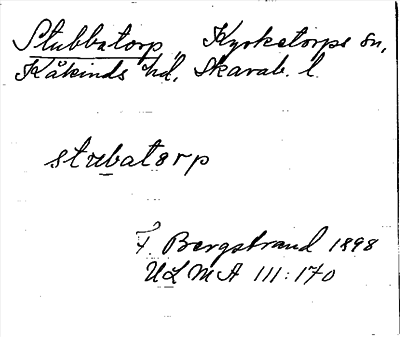 Stubbatorp, Kyrketorps sn,
Kåkinds hd, Skarab. l.
stubatorp
F. Bergstrand 1898
ULMA 111:170